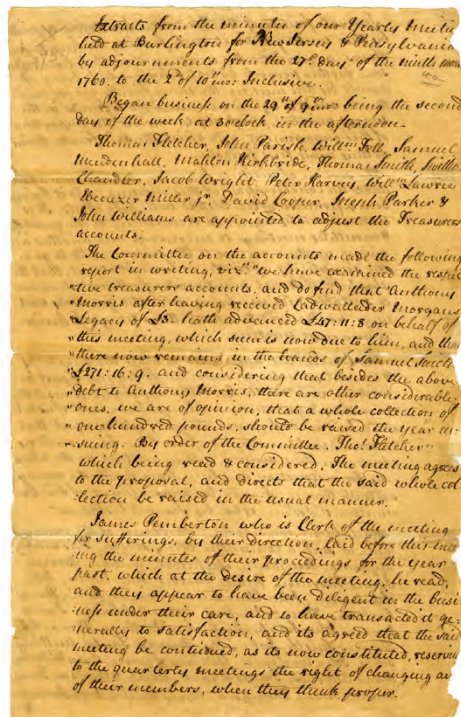 Extracts from the minutes of our Yearly Meetin
held at Burlington for New Jersey & Pensylvania
by adjournments from the 27th. day of the ninth mon
1760. to the 2d of 10th mo: Inclusive.
Began business on the 29th of 9th mo being the second
day of the week at 3 oclock in the afternoon.
Thomas Fletcher, John Parish, Willm Fell, Samuel
Mendenhall, Mahlon Kirkbride, Thomas Smith, Swithin
Chandler, Jacob Wright, Peter Harvey, Willm Lawrie
Ebenezer Miller jr. David Cooper, Joseph Parker &
John Williams are appointed to adjust the Treasurers
accounts.
The Committee on the accounts made the following
report in writing, vizt. "we have examined the respec
"tive treasurers accounts, and do find that Anthony
"Morris after having received Cadwallader Morgans
"Legacy of £3. hath advanced £47:11:8 on behalf of
"this meeting, which sum is now due to him, and that
"there now remains in the hands of Samuel Smith
"£271:16:9. and considering that besides the above
"debt to Anthony Morris, there are other considerable
"ones, we are of opinion, that a whole collection of
"one hundred pounds, should be raised the year en-
"suing. By order of the Committee. Thos. Fletcher"
which being read & considered, The meeting agrees
to the proposal, and directs that the said whole col
lection be raised in the usual manner.
James Pemberton who is Clerk of the meeting
for sufferings, by their direction, laid before this meet
ing the minutes of their proceedings for the year
past, which at the desire of the meeting, he read,
and they appear to have been deligent in the busi
ness under their care, and to have transacted it ge
nerally to satisfaction, and its agreed that the said
meeting be continued, as its now constituted, reserving
to the quarterly meetings the right of changing any
of their members, when they think proper.